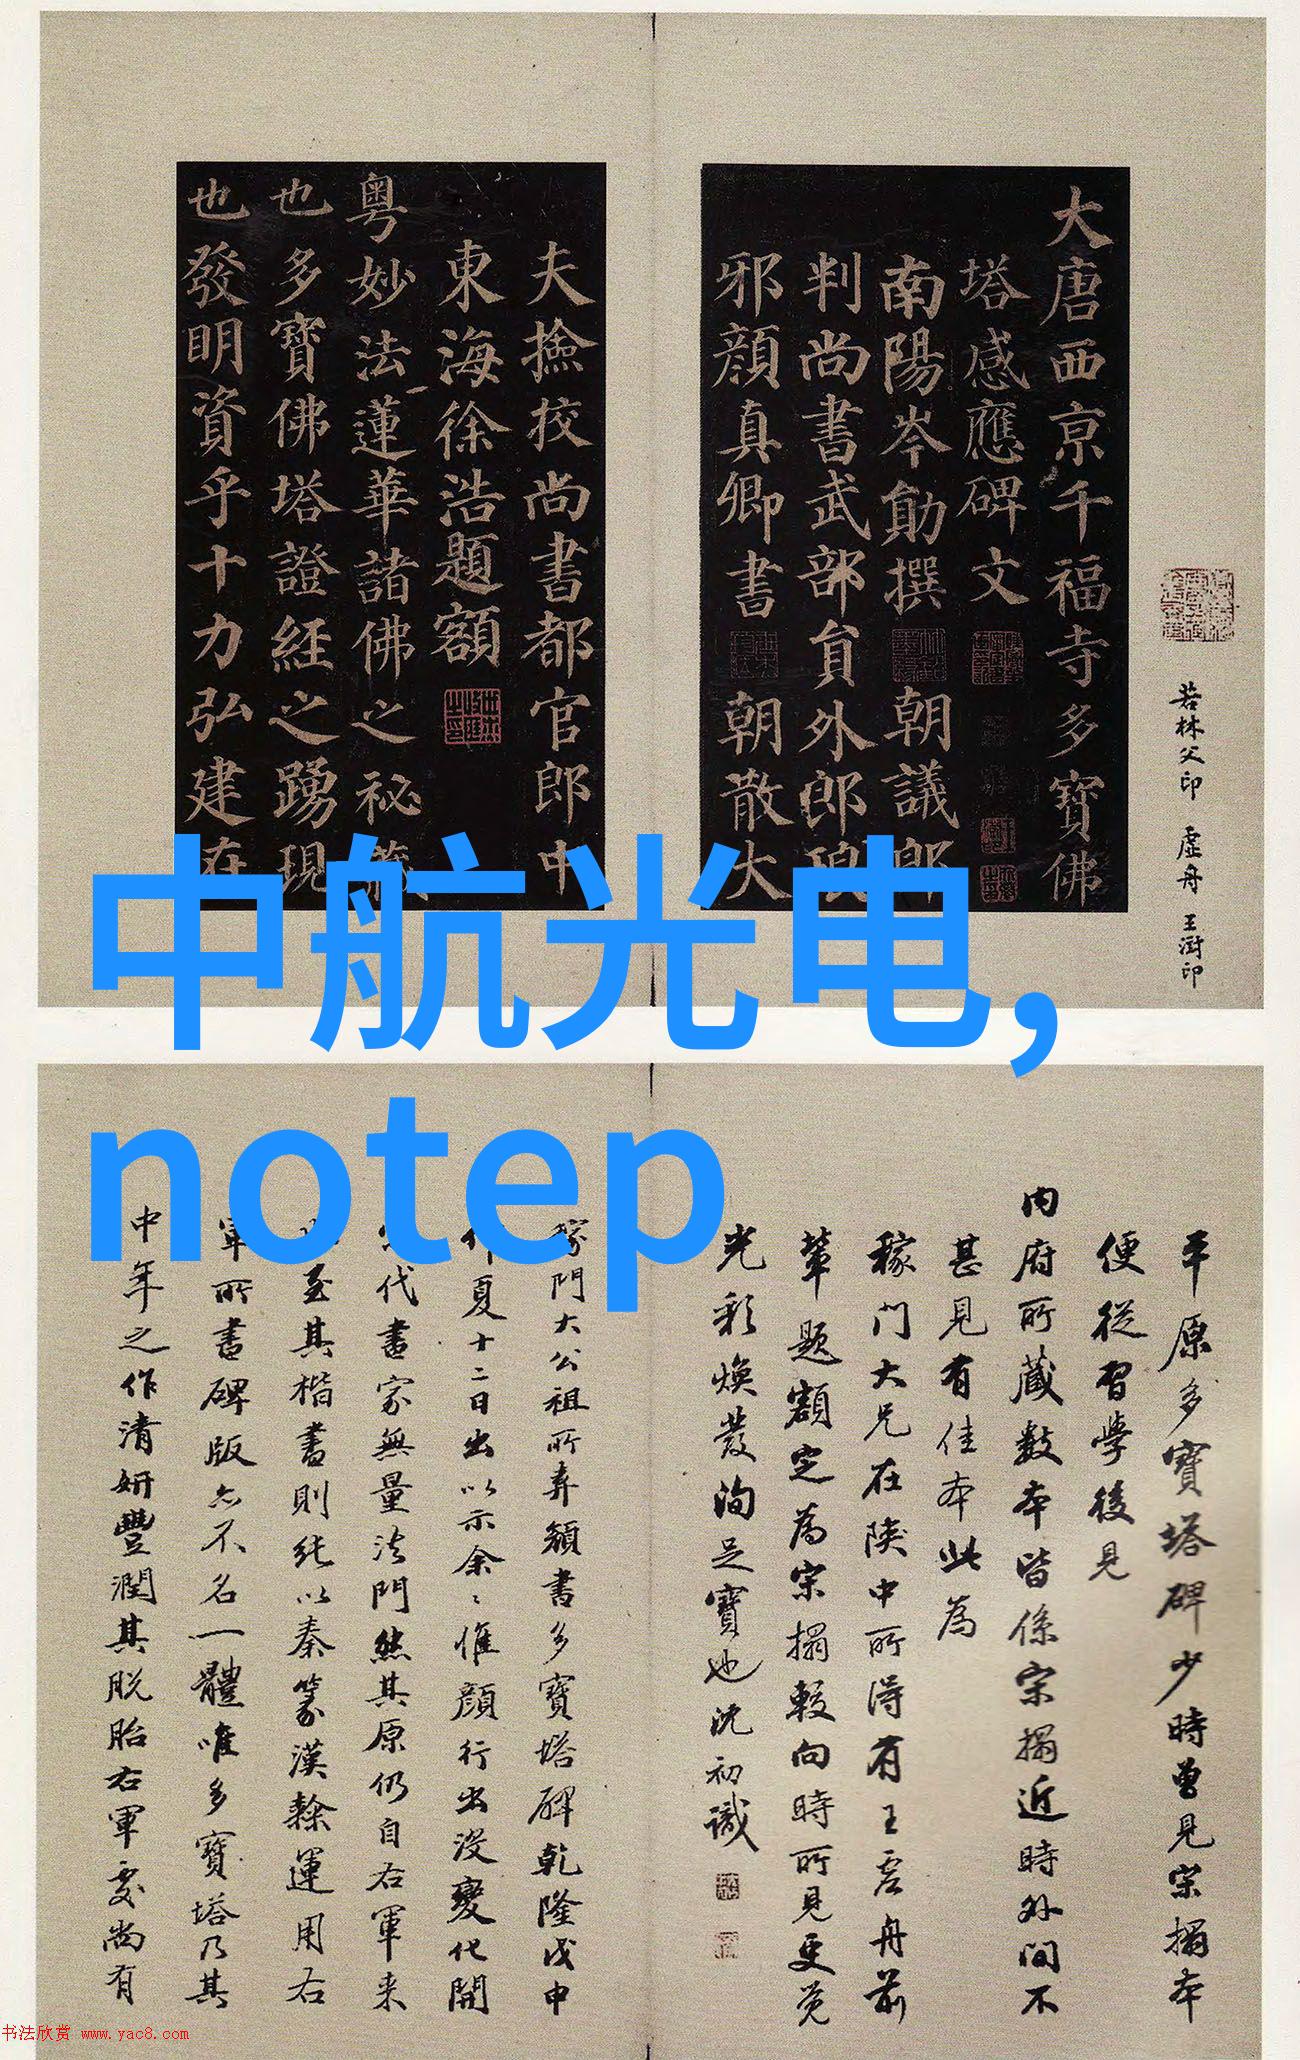 大唐西京千福寺多寶佛
塔感應碑文
南陽岑勛撰
朝議郎
判尚書武部員外郎琅
邪顏真卿書
朝散大
夫撿挍尚書都官郎中
東海徐浩題額
粵妙法蓮華諸佛之祕藏
也多寶佛塔證經之踴現
也發明資乎十力弘建在
若林父印 虛舟 王澍印
中航光电,
notep
平原多寶塔碑少時曾見宋搨本
便從習學後見
內府所藏數本皆係宋搨近時外間不
甚見有佳本此為
稼門大兄在陝中所得有王虛舟前
輩題額定為宋搨較向時所見更覺
光彩煥發洵足寶也沈初識
門大公祖所弆顏書多寶塔碑乾隆戊申
夏十二日出以示余惟顏行出沒變化開
代書家無量法門然其原仍自右軍来
至其楷書則純以秦篆漢隸運用右
軍所書碑版亦不名一體唯多寶塔乃其
中年之作清妍豐潤其脫胎右軍處尚有
书法欣赏 www.yac8.com